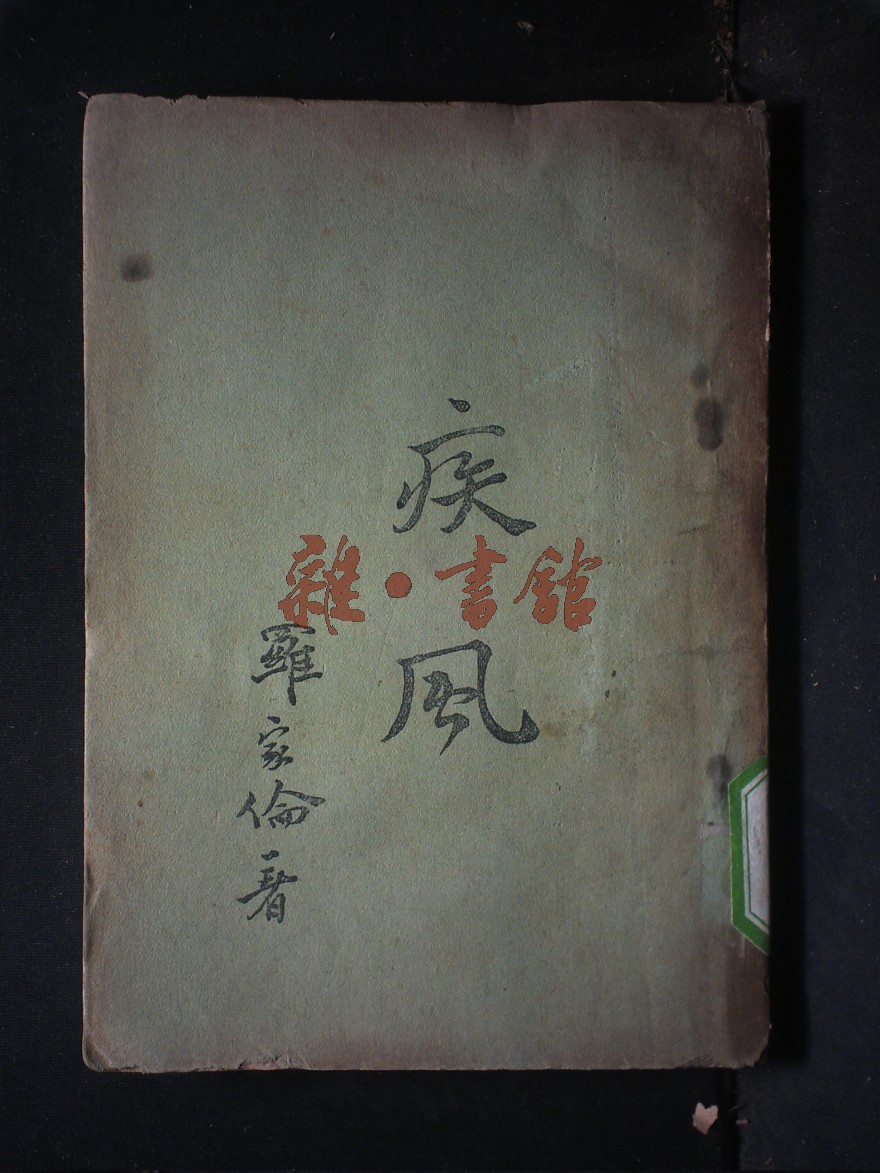 疾風
雜·書館
羅家倫著